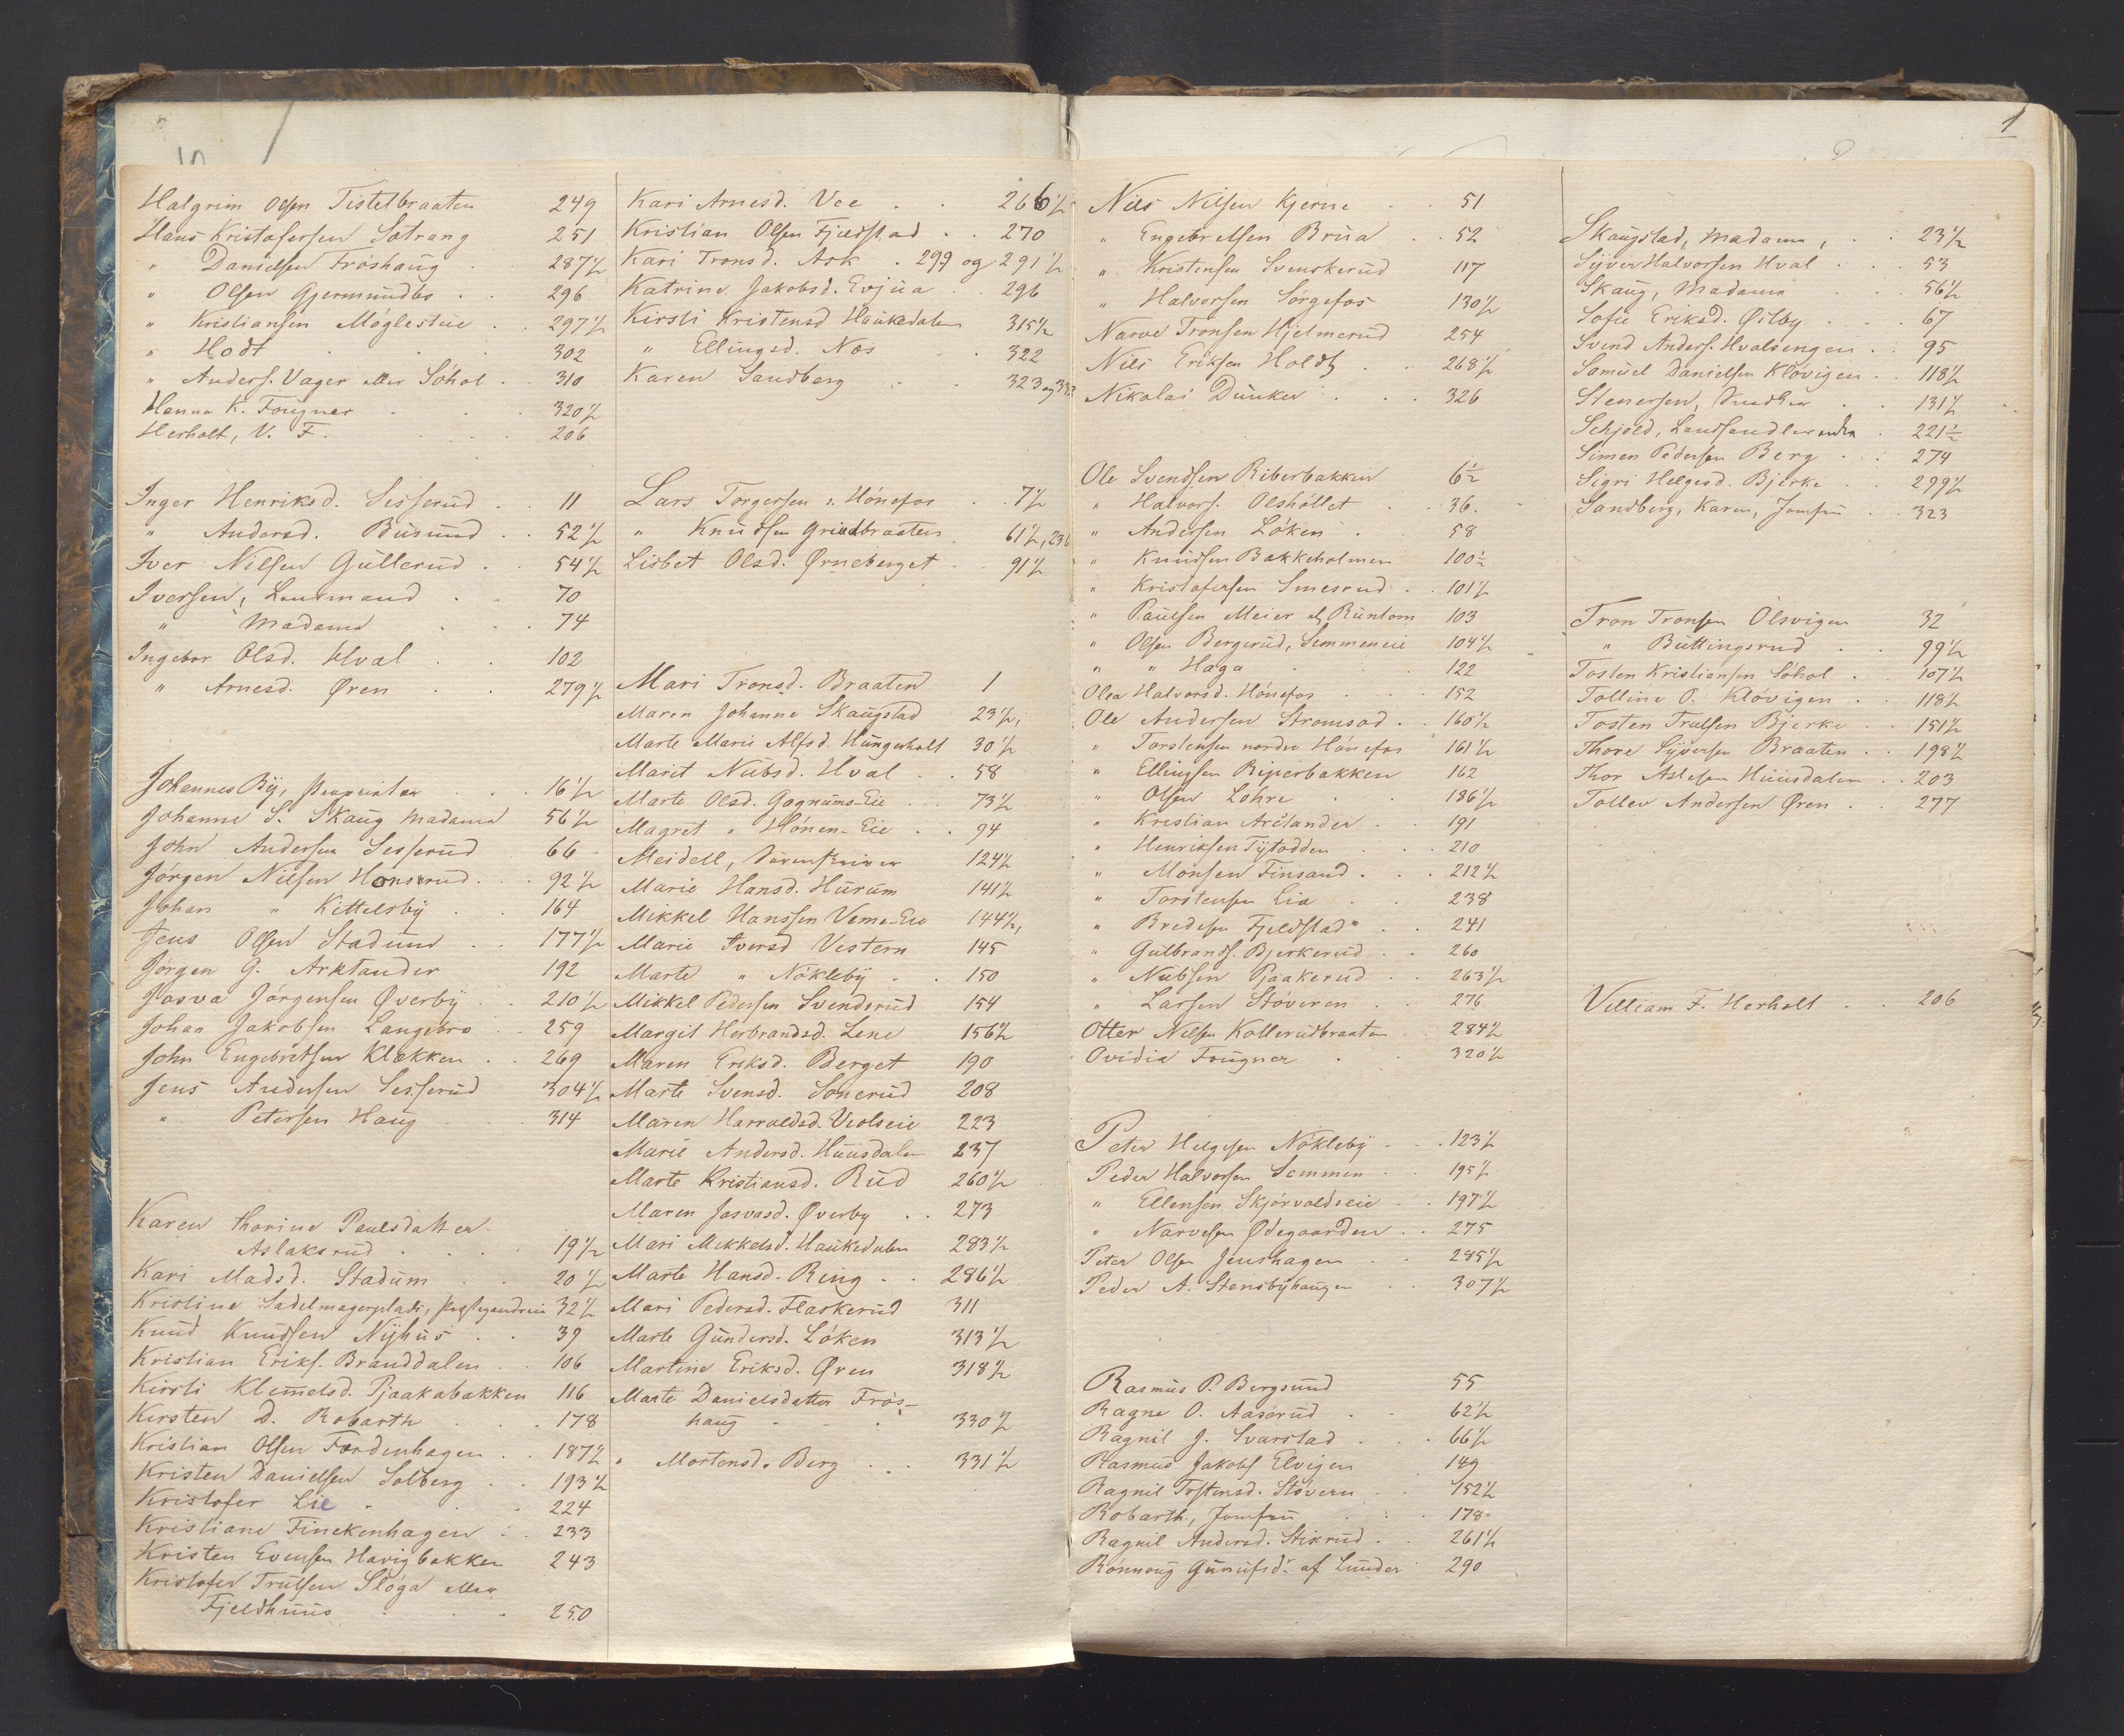 Halgrim Olsen Tistelbraaten 249
Hans Kristofersen Sotrang 251
" Danielsen Fróshaug . 287 1/2
" Olsen Gjermundbo . . 296
" Kristiansen Móglestue . . 297 1/2
" Hodt . . . 302
" Anders. Vager eller Sóhol . . 310
Hanna K. Fougner . . . 320 1/2
Herholt, V. F. . . . 206
Inger Henriksd. Sesserud . . 11
" Andersd. Busund . . 52 1/2
Iver Nilsen Gullerud . . 54 1/2
Iversen, Lensmand . . 70
" Madame . . . 74
Ingebor Olsd. Hval . . 102
" Arnesd. Øren . . 279 1/2
Johannes By, Proprietær . . . 16 1/2
Johanne S. Skaug Madame 56 1/2
John Andersen Sesserud 66
Jórgen Nilsen Honserud . . . 92 1/2
Johan " Kittelsby . . 164
Jens Olsen Stadum . . 177 1/2
Jórgen G. Arktander 192
Josva Jórgensen Øverby . . 210 1/2
Johan Jakobsen Langebro . . 259
John Engebretsen Klækken . . 269
Jens Andersen Sesserud 304 1/2
" Petersen Haug . . . 314
Karen Thorine Paulsdatter
Aslaksrud . . . . 19 1/2
Kari Madsd. Stadum . . 20 1/2
Kristine Sadelmagerplads, 32 1/2
Knud Knudsen Nyhus . . 39
Kristian Eriks. Branddalen . . 106
Kirsti Klemetsd. Pjaakabakken 116
Kirsten D. Robarth . . . 178
Kristian Olsen Fordenhagen . . 187 1/2
Kristen Danielsen Solberg . . 193 1/2
Kristofer Lie . . . 224
Kristiane Finckenhagen . . 233
Kristen Evensen Havigbakken 243
Kristofer Trulsen Slóga eller
Fjeldhuus . . . 250
Kari Arnesd. Vee . . 266 1/2
Kristian Olsen Fjeldstad . . 270
Kari Tronsd. Ask . 299 og 291 1/2
Katrine Jakobsd. Evjua . . 296
Kirsti Kristensd. Haukedalen 315 1/2
" Ellingsd. Næs . . 322
Karen Sandberg . . 323 og
Lars Torgersen s. Hónefos . . 7 1/2
" Knudsen Grindbraaten . 61 1/2, 236
Lisbet Olsd. Ørneberget . . 91 1/2
Mari Tronsd. Braaten 1
Maren Johanne Skaugstad 23 1/2,
Marte Marie Alfsd. Hungerholt 30 1/2
Marit Nubsd. Hval . . 58
Marte Olsd. Gagnums-Eie . . 73 1/2
Magret " Hónen-Eie . . 94
Meidell, Sorenskriver 124 1/2
Marie Hansd. Hurum 141 1/2
Mikkel Hanssen Veme-Eie 144 1/2,
Marie Iversd Vestern 145
Marte " Nókleby . . 150
Mikkel Pedersen Svendsrud 154
Margit Herbrandsd. Lene 156 1/2
Maren Eriksd. Berget 190
Marte Svensd. Sonerud 208
Maren Harraldsd. Veolseie 223
Marie Andersd. Huusdalen 237
Marte Kristiansd. Rud 260 1/2
Maren Josvasd. Øverby . . 273
Mari Mikkelsd. Haukedalen 283 1/2
Marte Hansd. Ring . . 286 1/2
Mari Pedersd. Flaskerud 311
Marte Gundersd. Lóken 313 1/2
Martine Eriksd. Øren 318 1/2
Marte Danielsdatter Frós-
haug . . . 330 1/2
" Mortensd. Berg . . 331 1/2
1
Nils Nilsen Kjerne . . 51
" Engebretsen Brua . . 52
" Kristensen Svenskerud 117
" Halvorsen Sórgefos 130 1/2
Narve Tronsen Hjelmerud 254
Nils Eriksen Holdt . . 268 1/2
Nikolai Dunker . . . 326
Ole Svendsen Riberbakken 6 1/2
" Halvors. Olshóllet . 36.
" Andersen Lóken . 58
" Knudsen Bakkeholmen 100 1/2
" Kristofersen Smesrud . . 101 1/2
" Paulsen Meier 103
" Olsen Bergerud, Semmeneie 104 1/2
" " Haga . . 122
Olea Halvorsd. Hónefos . . 152
Ole Andersen Stromsod . . 160 1/2
" Torstensen nordre Hónefos 161 1/2
" Ellingsen Riperbakken 162
" Olsen Lóhre . . 186 1/2
" Kristian Arctander . . 191
" Henriksen Tytodden . . 210
" Monsen Finsand . . . 212 1/2
" Torstensen Lia . . 238
" Bredesen Fjeldstad . . 241
" Gulbrands. Bjerkerud . . 260
" Nubsen Pjaakerud . . 263 1/2
" Larsen Stóveren . . 276
Otter Nilsen Kollerudbraaten 284 1/2
Ovidia Fougner . . 320 1/2
Peter Helgesen Nókleby . . . 123 1/2
Peder Halvorsen Semmen . . 195 1/2
" Ellensen Skjórvoldseie . . 197 1/2
" Narvesen Ødegaarden . . 275
Peter Olsen Jenshagen . . 285 1/2
Peder A. Stensbyhaugen . . 307 1/2
Rasmus P. Bergsund 55
Ragne O. Aaserud . . 62 1/2
Ragnil J. Svarstad . . . 66 1/2
Rasmus Jakobs Elvigen 149
Ragnil Tostensd. Stóvern . . 152 1/2
Robarth, Jomfru . . . 178
Ragnil Andersd. Stixrud . . 261 1/2
Rónnaug Gunulfsdr af Lunder 290
Skaugstad, Madame, . . 23 1/2
Syver Halvorsen Hval . . . 53
Skaug, Madame . . 56 1/2
Sofie Eriksd. Øilby . . . 67
Svend Anders. Hvalsengen . . 95
Samuel Danielsen Klóvigen . . 118 1/2
Stenersen, . . 131 1/2
Schjold, Landhandler . 221 1/2
Simen Pedersen Berg . . 274
Sigri Helgesd. Bjerke . . 299 1/2
Sandberg, Karen, Jomfru . . 323
Tron Tronsen Olsvigen 32
" Buttingsrud . . 99 1/2
Tosten Kristiansen Sóhol . . 107 1/2
Tolline O. Klóvigen . . 118 1/2
Tosten Trulsen Bjerke . . 151 1/2
Thore Syversen Braaten . . 198 1/2
Thor Aslesen Huusdalen . . 203
Tollev Andersen Øren . . 277
Velliam F. Herholt . . 206